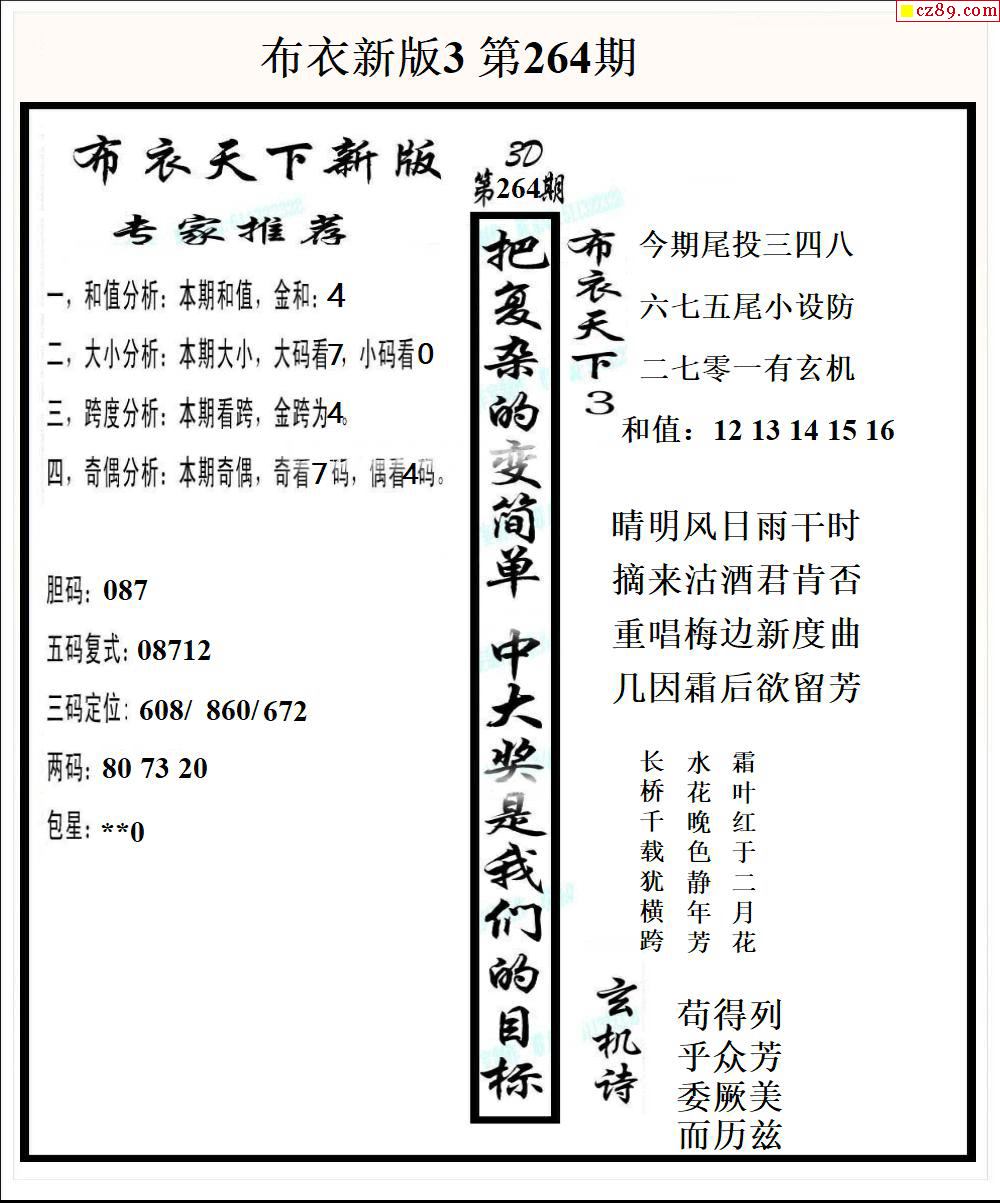 cz89.com
布衣新版3 第264期
布衣天下新版
专家推荐
一，和值分析：本期和值，金和：4
二，大小分析：本期大小，大码看7，小码看0
三，跨度分析：本期看跨，金跨为4。
四，奇偶分析：本期奇偶，奇看7码，偶看4码。
胆码：087
五码复式：08712
三码定位：608/ 860/672
两码：80 73 20
包星：**0
3D
第264期
把复杂的变简单 中大奖是我们的目标
布衣天下3
今期尾投三四八
六七五尾小设防
二七零一有玄机
和值：12 13 14 15 16
晴明风日雨干时
摘来沽酒君肯否
重唱梅边新度曲
几因霜后欲留芳
长桥千载犹横跨
水花晚色静年芳
霜叶红于二月花
玄机诗
苟得列
乎众芳
委厥美
而历兹